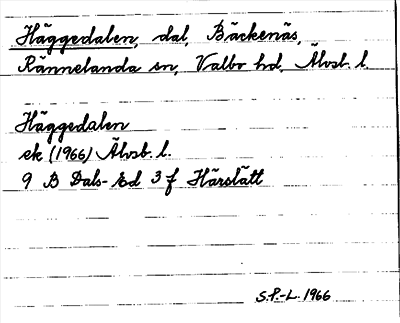 Häggedalen, dal, Bäckenäs,
Rännelanda sn, Valbo hd, Älvsb. l.
Häggedalen
ek (1966) Älvsb. l.
9 B Dals-Ed 3 f Härslätt
S.P.-L. 1966